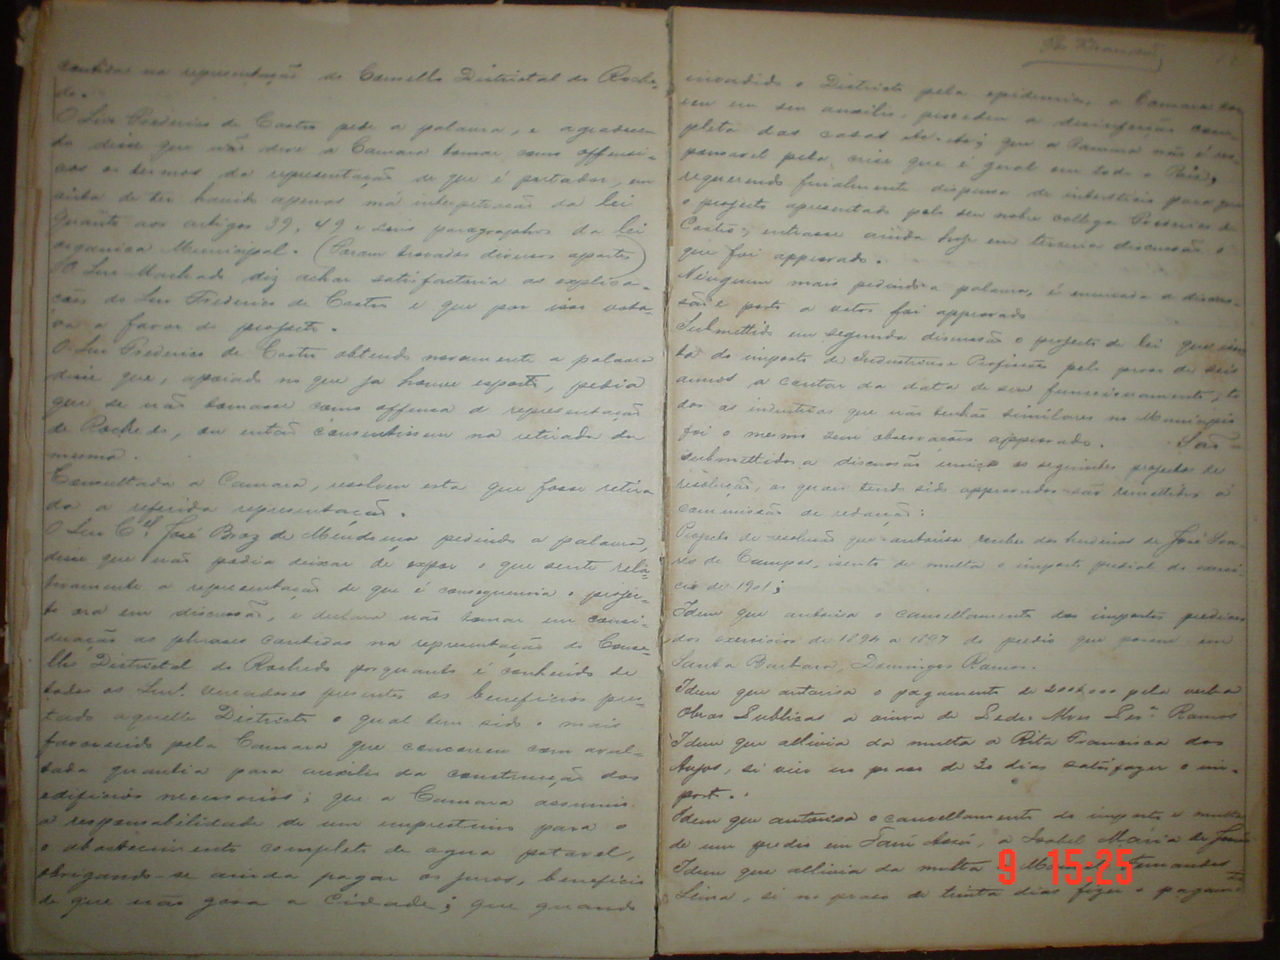 contidas na representação do Conselho Districtal do Roche-
do.
O Snr Frederico de Castro pede a palavra, e agradecen-
do disse que não deve a Camara tomar como offensi-
vos os termos da representação de que é portador, em
vista de ter havido apenas má interpetração da lei
quanto aos artigos 39, 49 e seus paragraphos da lei
organica Municipal. (Foram trocados diversos apartes)
O Snr Machado diz achar satisfactoria as explica-
ções do Snr Frederico de Castro e que por isso vota-
va a favor do projecto.
O Snr Frederico de Castro obtendo novamente a palavra
disse que, apoiado no que ja houve exposto, pedia
que se não tomasse como offensa a representação
do Rochedo, ou então consentissem na retirada da
mesma.
Consultada a Camara, resolveu esta que fosse retira
da a referida representação.
O Snr Cel. José Braz de Mendonça pedindo a palavra,
disse que não podia deixar de expor o que sente rela-
tivamente a representação de que é consequencia o projec-
to ora em discussão, e declara não tomar em consi-
deração as phrases contidas na representação do Conse-
lho Districtal do Rochedo porquanto é conhecido de
todos os Snrs. Vereadores presentes os beneficios pres-
tado aquelle Districto o qual tem sido o mais
favorecido pela Camara que concorreu com avul-
tada quantia para auxilio da construcção dos
edificios necessarios; que a Camara assumio
a responsabilidade de um emprestimo para o
o abastecimento completo de agua potavel,
obrigando-se ainda pagar os juros, beneficio
de que não gosa a Cidade; que quando
invadido o Districto pela epidemia, a Camara
em seu auxilio, procedeu a desinfecção com-
pleta das casas que a Camara não é res-
ponsavel pela crise que é geral em todo o Paiz,
requerendo finalmente dispensa de intersticio para que
o projecto apresentado pelo seu nobre collega Frederico de
Castro, entrasse ainda hoje em terceira discussão o
que foi approvado.
Ninguem mais pedindo a palavra, é encerrada a discus-
são e posto a votos foi approvado
Submettido em segunda discussão o projecto de lei que isen
ta do imposto de Industrias e Profissões pelo praso de seis
annos a contar da data de seu funccionamento, to
das as industrias que não tenhão similares no Municipio
foi o mesmo sem observações approvado. São
submettidos a discussão unica os seguintes projectos de
resolução, os quaes tendo sido approvados são remettidos á
commissão de redacção:
Projecto de resolução que autorisa receber dos herdeiros de José Soa-
res de Campos, isento de multa o imposto predial do exerci-
cio de 1901;
Idem que autorisa o cancellamento dos impostos prediaes
dos exercicios de 1894 a 1897 do predio que possue em
Santa Barbara, Domingos Ramos.
Idem que autorisa o pagamento de 200$000 pela verba
Obras Publicas a viuva de Pedro Alves Per.ª Ramos
Idem que allivia da multa a Rita Francisca dos
Anjos, si vier no praso de 30 dias satisfazer o im-
posto.
Idem que autorisa o cancellamento do imposto e multa
de um predio em a Isabel Maria de Jesus
Idem que allivia da multa Fernandes
Lima, si no praso de trinta dias fizer o pagamto
9 15:25